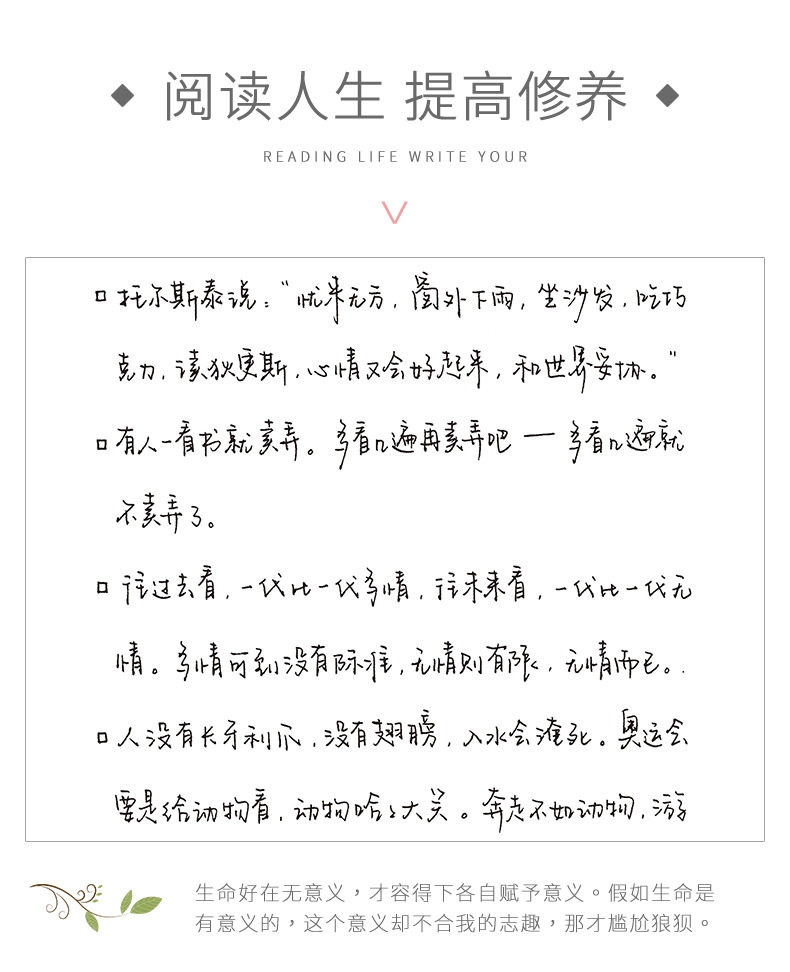 阅读人生 提高修养
READING LIFE WRITE YOUR
托尔斯泰说："忧来无方，窗外下雨，坐沙发，吃巧
克力，读狄更斯，心情又会好起来，和世界妥协。"
有人一看书就卖弄。多看几遍再卖弄吧 — 多看几遍就
不卖弄了。
往过去看，一代比一代多情，往未来看，一代比一代无
情。多情可到没有际涯，无情则有限，无情而已。
人没有长牙利爪，没有翅膀，入水会淹死。奥运会
要是给动物看，动物哈哈大笑。奔走不如动物，游
生命好在无意义，才容得下各自赋予意义。假如生命是
有意义的，这个意义却不合我的志趣，那才尴尬狼狈。